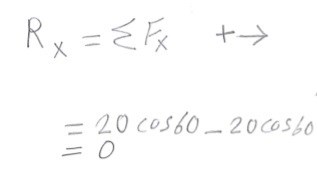 Rx = ΣFx +→
= 20 cos60 - 20cos60
= 0